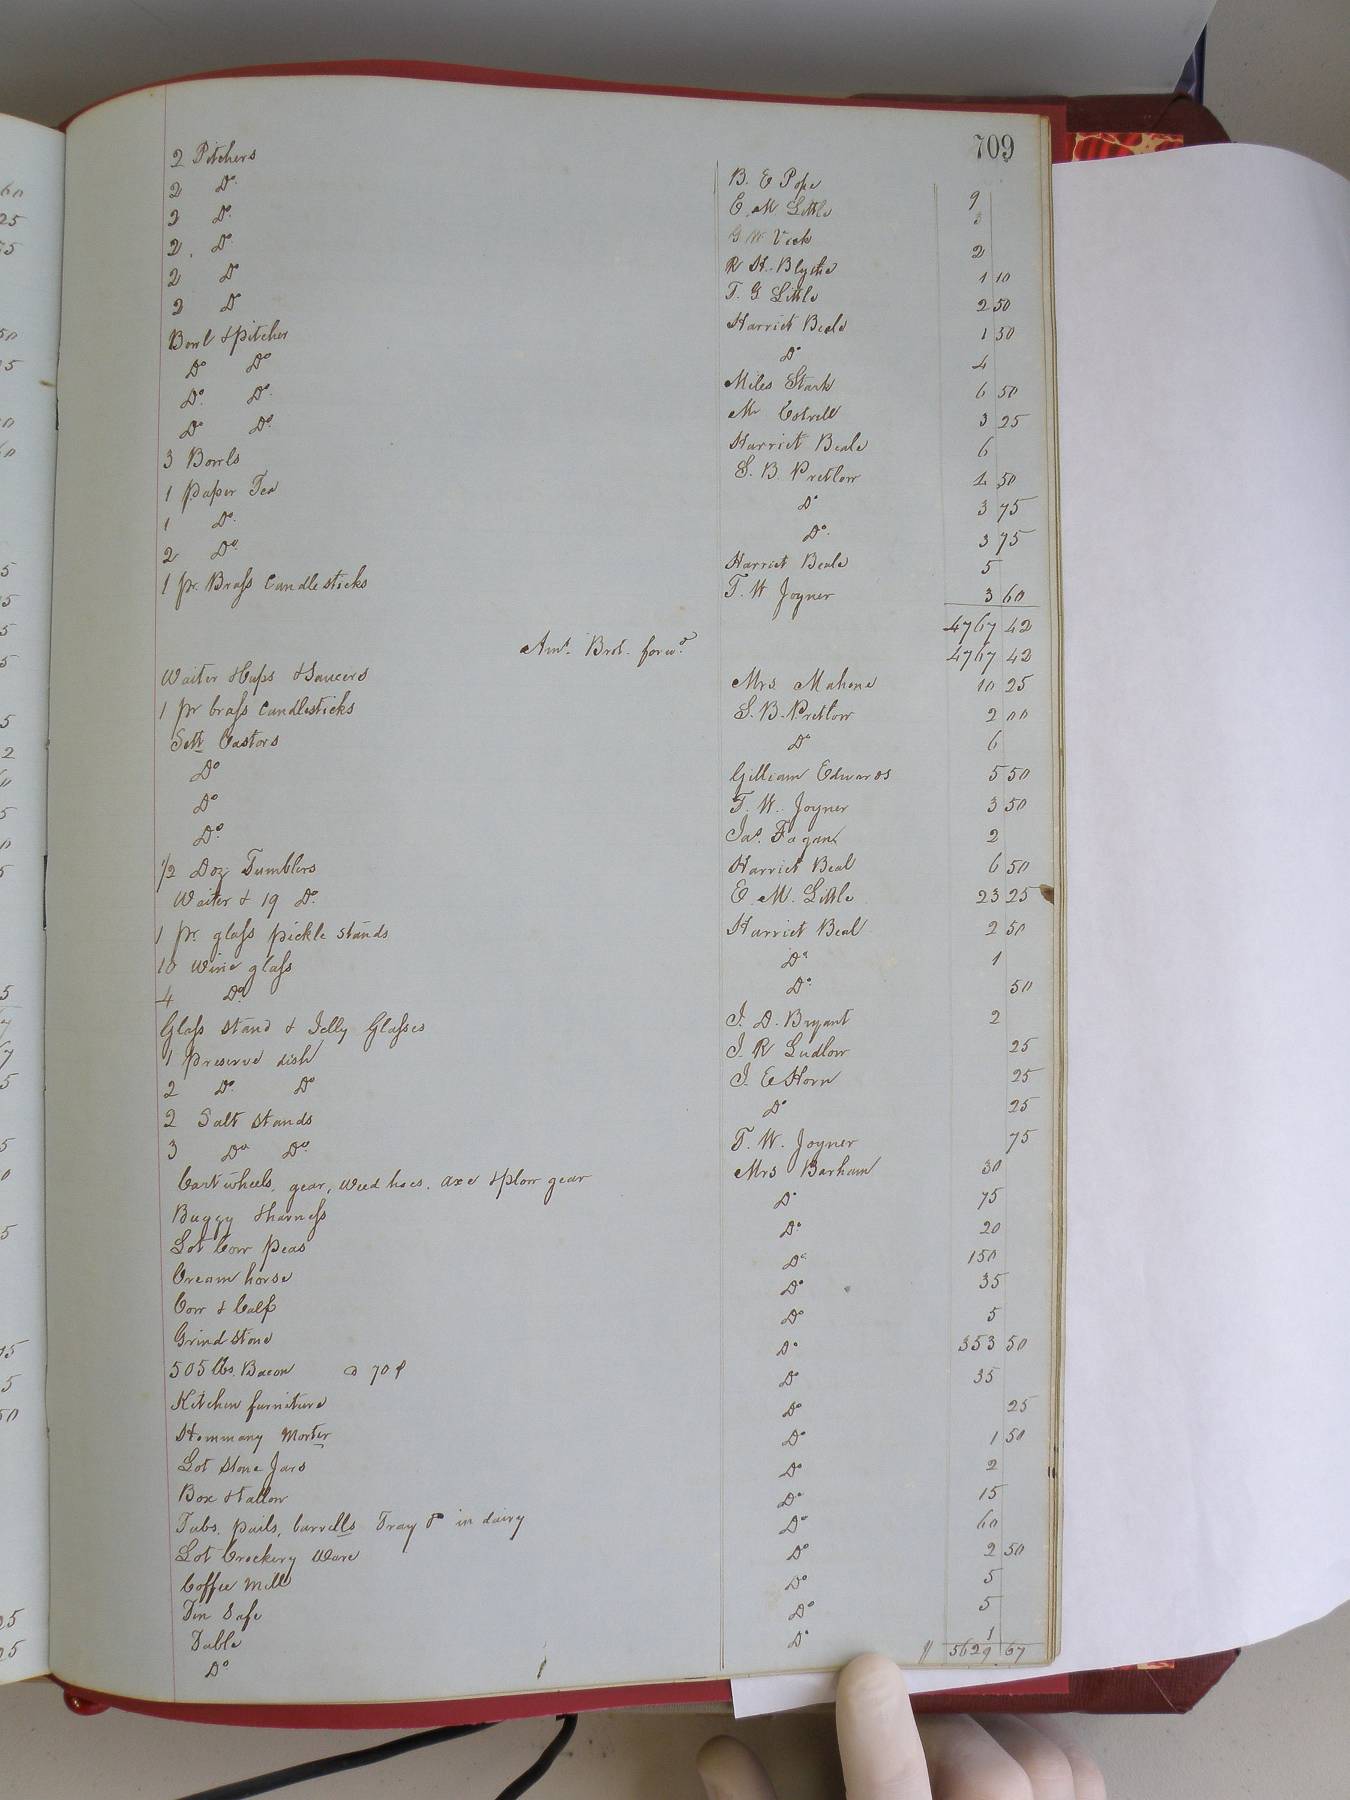 709
2 Pitchers B. E Pope 9
2 Do. E. M. Little 3
2 Do. G W Vick 2
2 Do. R H. Blythe 1 10
2 Do T. G Little 2 50
2 Do Harriet Beale 1 30
Bowl & pitcher Do 4
Do Do Miles Stark 6 50
Do. Do. Mr 3 25
Do. Do. Harriet Beale 6
3 Bowls S. B. Pretlow 1 50
1 Paper Tea Do 3 75
1 Do. Do. 3 75
2 Do Harriet Beale 5
1 pr. Brass Candlesticks T. W Joyner 3 60
4767 42
Amt. Brot. forwd. 4767 42
Waiter Cups & Saucers Mrs Mahone 10 25
1 pr brass Candlesticks S. B. Pretlow 2 00
Sett Castors Do 6
Do Gilliam Edwards 5 50
Do T. W. Joyner 3 50
Do. Jas. Fagan 2
1/2 Doz Tumblers Harriet Beal 6 50
Waiter & 19 Do. E. M. Little 23 25
1 Pr. glass pickle stands Harriet Beal 2 50
10 Wine glass Do 1
4 Do Do. 50
Glass stand & Jelly Glasses J. D. Bryant 2
1 Preserve dish J. R Ludlow 25
2 Do. Do J. E Horn 25
2 Salt stands Do 25
3 Do Do. T. W. Joyner 75
Cart wheels, gear, weed hoes, axe & plow gear Mrs Barham 30
Buggy & harness Do 75
Lot Cow Peas Do. 20
Cream horse Do 150
Cow & Calf Do 35
Grind stone Do 5
505 lbs. Bacon @ 70 ¢ Do 353 50
Kitchen furniture Do 35
Hommany Morter Do 25
Lot Stone Jars Do 1 50
Box & tallow Do 2
Tubs, pails, barrells Tray & in dairy Do 15
Lot Crockery Ware Do 60
Coffee Mill Do 2 50
Tin Safe Do 5
Table Do 5
Do Do 1
5629 67